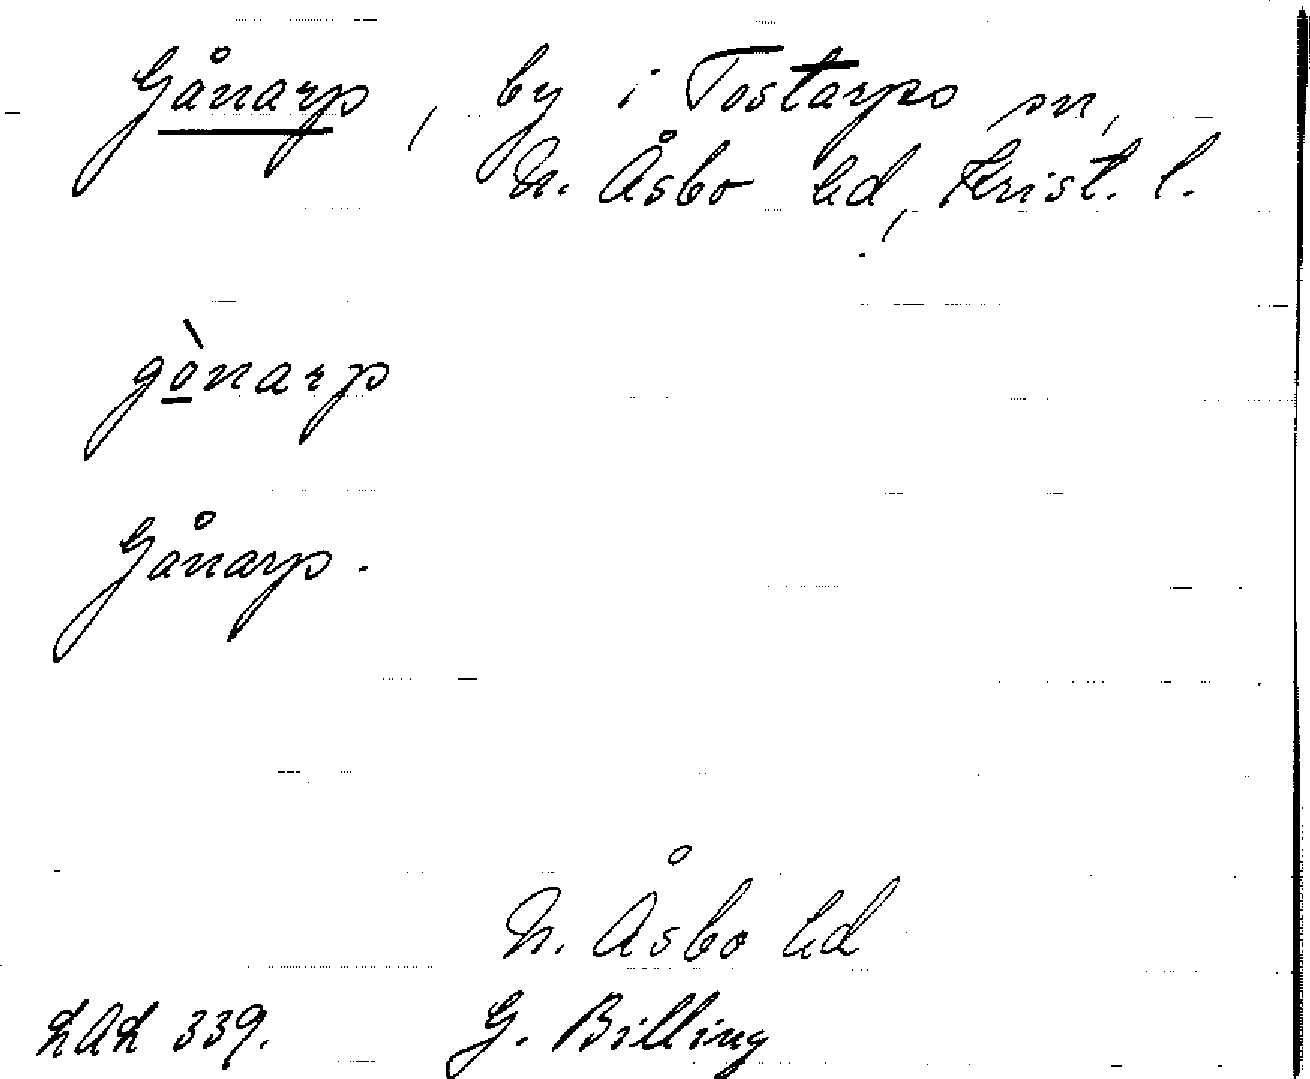 Gånarp, by i Tostarps sn,
N. Åsbo hd, Krist. l.
gò̲narp
Gånarp.
N. Åsbo hd
LAL 339. G. Billing